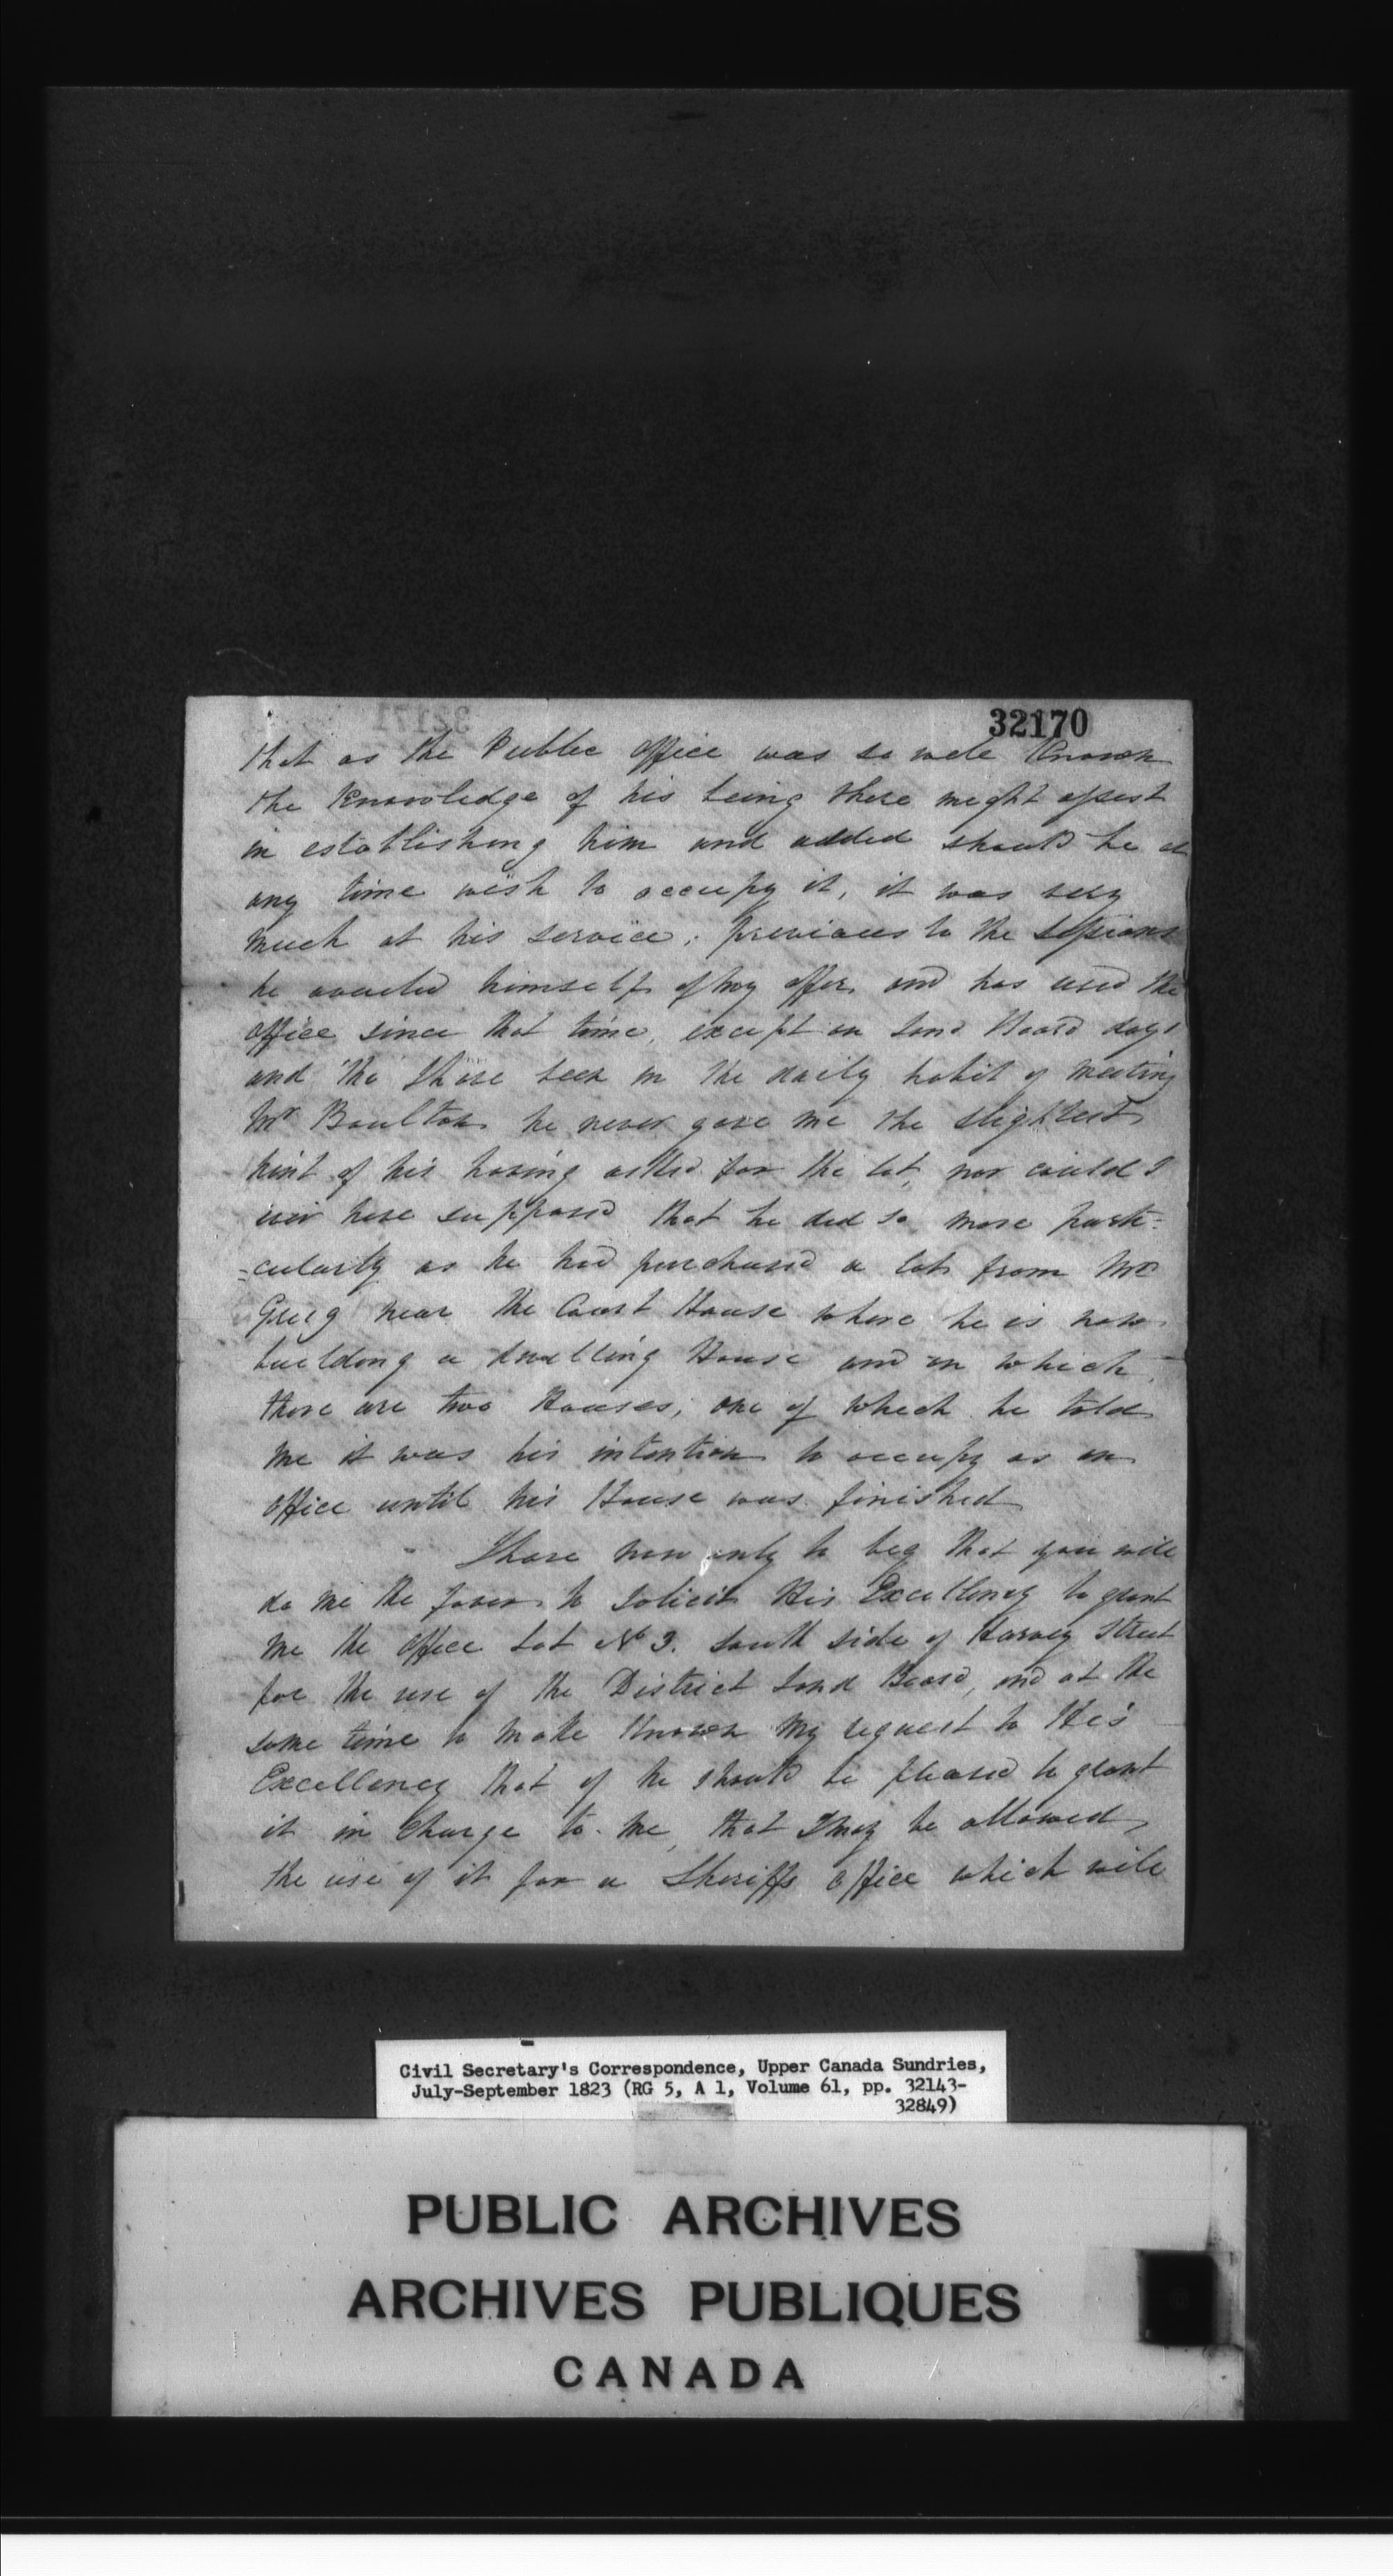 32170
that as the Public Office was so well Known
the Knowledge of his being there might assist
in establishing him and added should he at
any time wish to occupy it, it was very
much at his service; previous to the Sessions
he availed himself of my offer, and has used the
office since that time, except on Land Board days
and tho' I have been in the daily habit of meeting
Mr Boulton he never gave me the slightest
hint of his having asked for the lot, nor could I
ever have supposed that he did so more parti=
=cularly as he had purchased a lot from Mr
Greig near the Court House where he is now
building a dwelling House and on which
there are two Houses, one of which he told
me it was his intention to occupy as an
office until his House was finished
I have now only to beg that you will
do me the favor to solicit His Excellency to grant
me the Office Lot No 3. South side of Harvey Street
for the use of the District Land Board, and at the
same time to make Known my request to His
Excellency that if he should be pleased to grant
it in Charge to me, that I may be allowed
the use of it for a Sheriffs Office which will
Civil Secretary's Correspondence, Upper Canada Sundries,
July-September 1823 (RG 5, A 1, Volume 61, pp. 32143-
32849)
PUBLIC ARCHIVES
ARCHIVES PUBLIQUES
CANADA